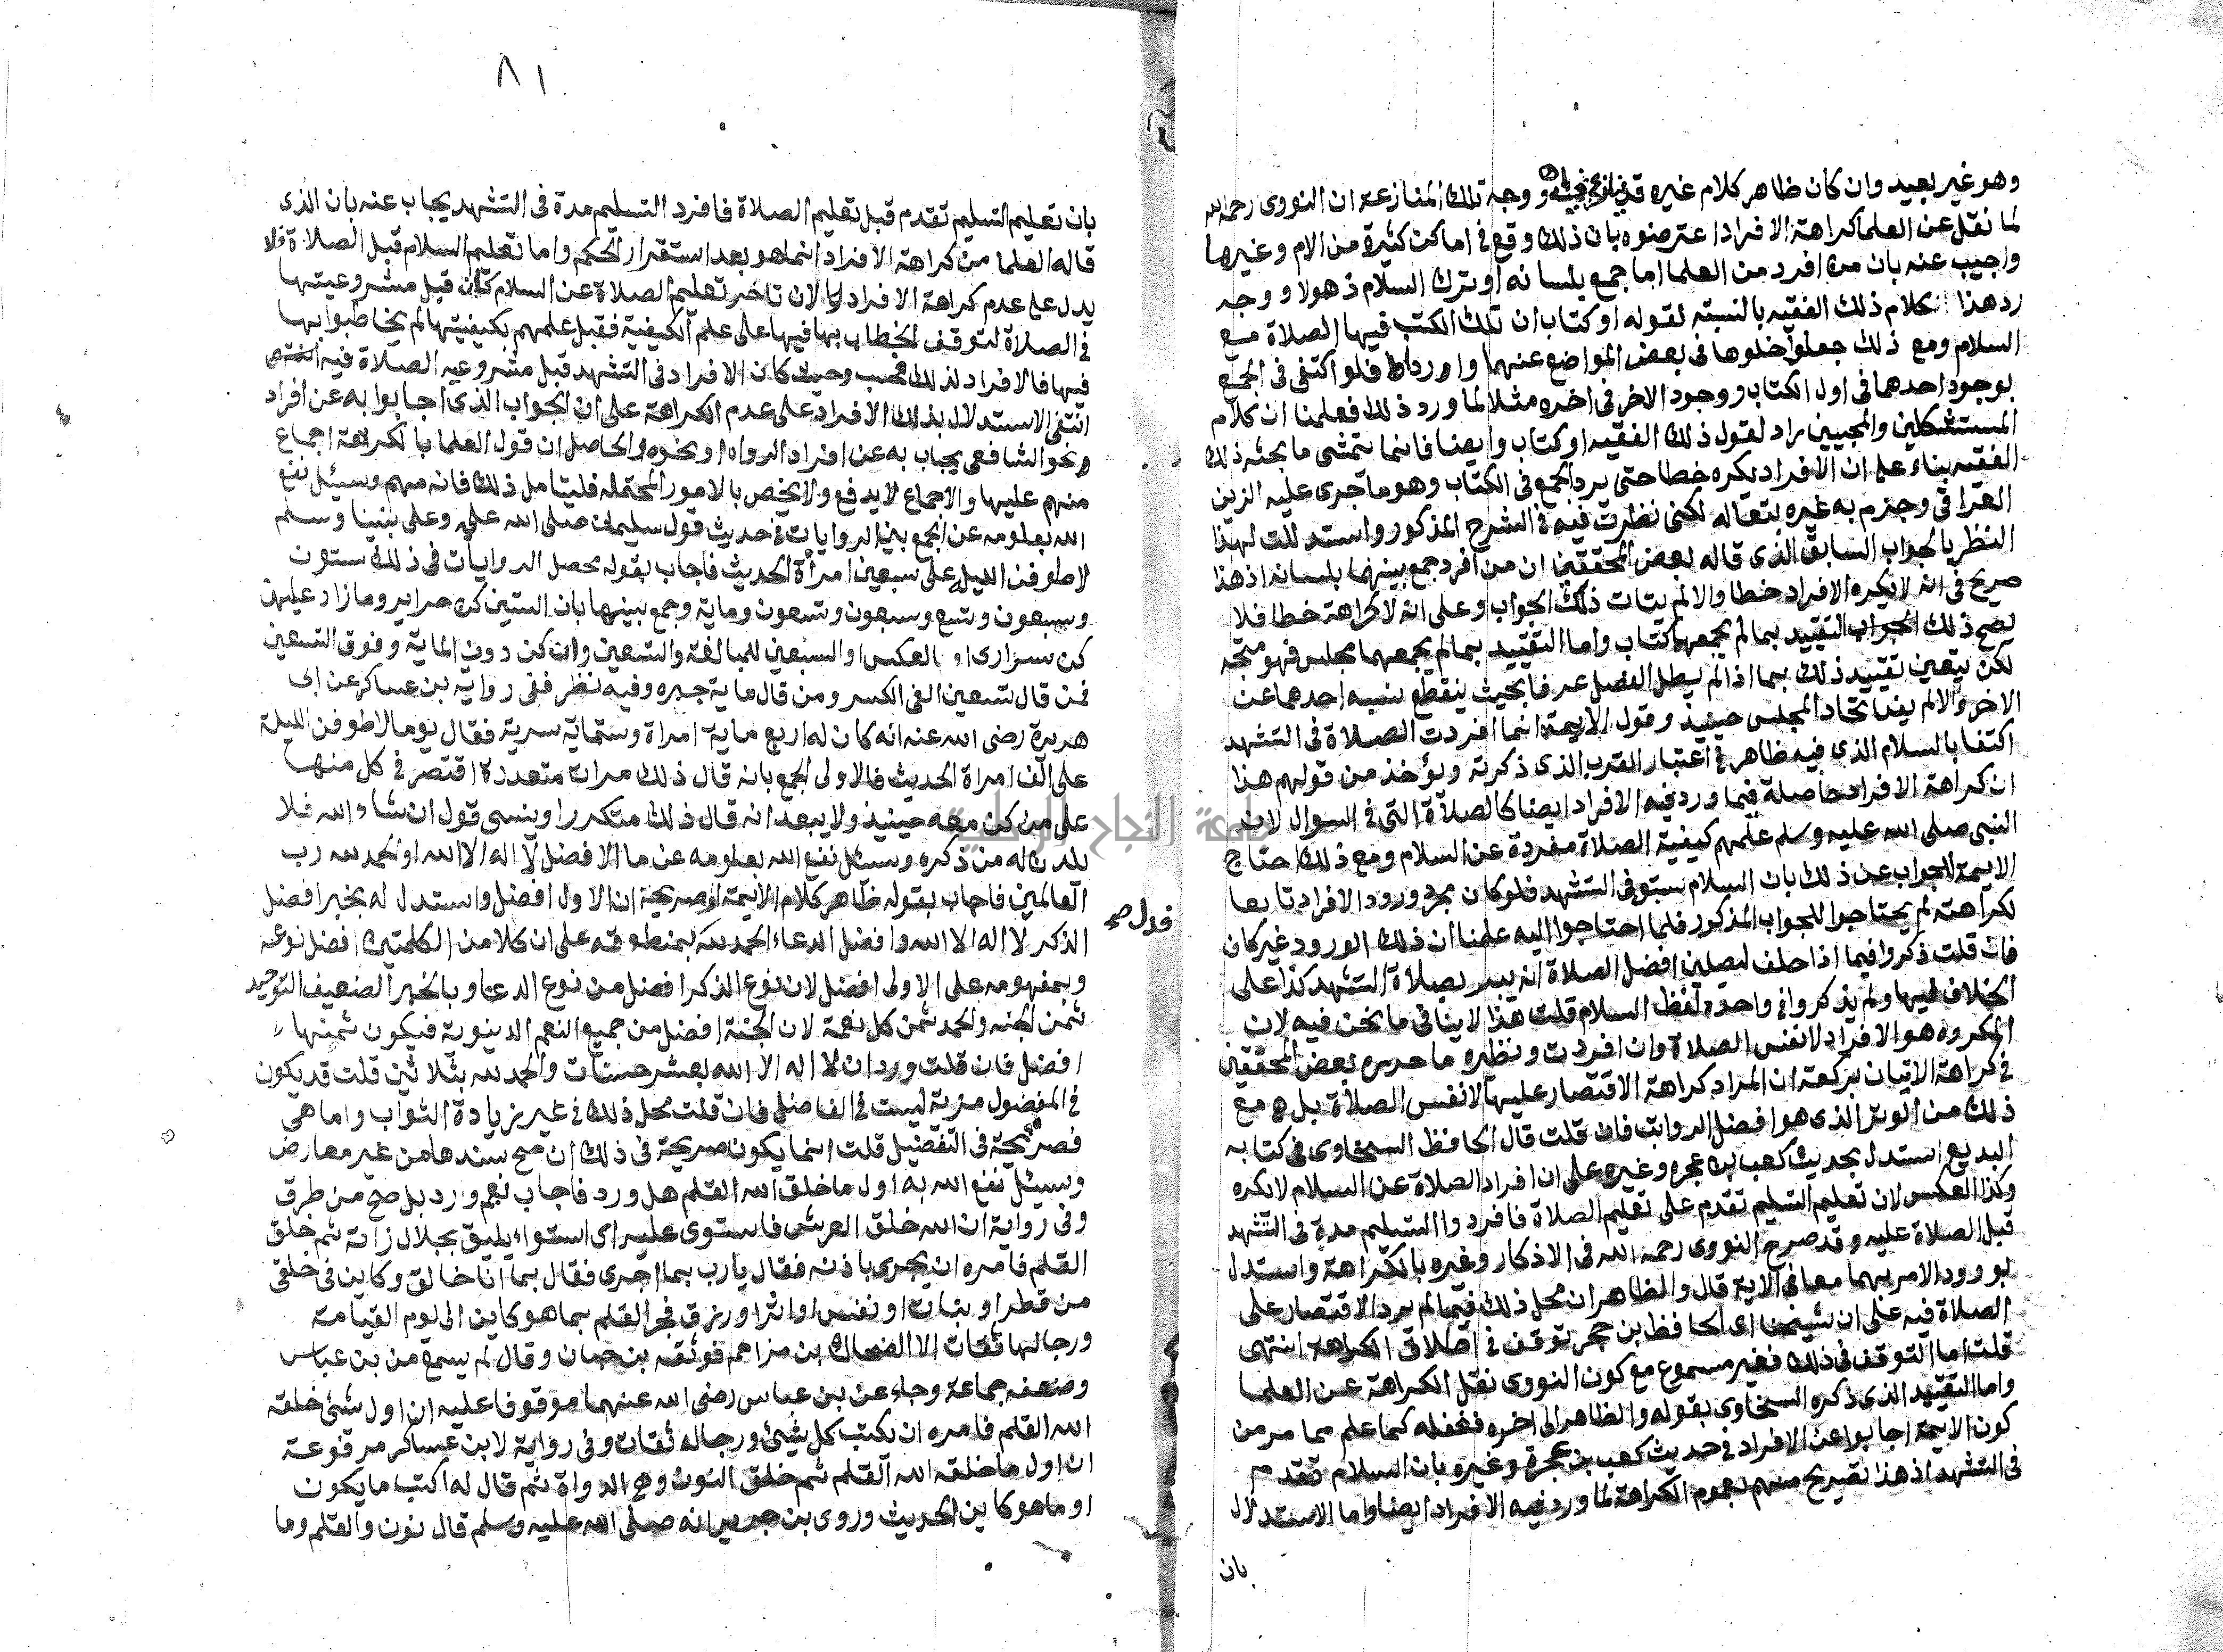 وهو غير بعيد وان كان ظاهر كلام غيره قد ينازع فيه ووجه تلك المنازعة ان النووى رحمه الله
لما نقل عن العلما كراهة الافراد اعترضوه بان ذلك وقع فى اماكن كثيرة من الام وغيرها
واجيب عنه بان من افرد من العلما اما جمع بلسانه او ترك السلام ذهولا ووجه
رد هذا كلام ذلك الفقيه بالنسبة لقوله او كتاب ان تلك الكتب فيها الصلاة مع
السلام ومع ذلك جعلوا خلوها فى بعض المواضع عنهما واردا فلو اكتفى فى الجمع
بوجود احدهما فى اول الكتاب ووجود الاخر فى اخره مثلا لما ورد ذلك فعلمنا ان كلام
المستشكلين والمجيبين راد لقول ذلك الفقيه او كتاب وايضا فانما يتمشى ما بحثه ذلك
الفقيه بناء على ان الافراد يكره خطا حتى يرد الجمع فى الكتاب وهو ما جرى عليه الزين
العراقى وجزم به غيره تبعا له لكنى نظرت فيه فى الشرح المذكور واستدللت لهذا
النظر بالجواب السابق الذى قاله بعض المحققين ان من افرد جمع بينهما بلسانه اذ هذا
صريح فى انه لا يكره الافراد خطا والا لم يتات ذلك الجواب وعلى انه لا كراهة خطا فلا
يصح ذلك الجواب التقييد بما لم يجمعهما كتاب واما التقييد بما لم يجمعهما مجلس فهو متجه
لكن يتعين تقييد ذلك بما اذا لم يطل الفصل عرفا بحيث ينقطع نسبه احدهما عن
الاخر والا لم يفد اتحاد المجلس حينيذ وقول الايمة انما افردت الصلاة فى التشهد
اكتفا بالسلام الذى فيه ظاهر فى اعتبار القرب الذى ذكرته ويؤخذ من قولهم هذا
ان كراهة الافراد حاصلة فيما ورد فيه الافراد ايضا كالصلاة التى فى السوال لان
النبى صلى الله عليه وسلم علمهم كيفية الصلاة مفردة عن السلام ومع ذلك احتاج
الايمة للجواب عن ذلك بان السلام سبق فى التشهد فلو كان مجرد ورود الافراد نافيا
لكراهته لم يحتاجوا للجواب المذكور فلما احتاجوا اليه علمنا ان ذلك الورود غير كان
فان قلت ذكروا فيما اذا حلف ليصلين افضل الصلاة انه يبر بصلاة التشهد كذا على
الخلاف فيها ولم يذكروا فى واحدة لفظ السلام قلت هذا لا ينافى ما نحن فيه لان
المكروه هو الافراد لا نفس الصلاة وان افردت ونظيره ما حرره بعض المحققين
فى كراهة الاتيان بركعة ان المراد كراهة الاقتصار عليها لا نفس الصلاة بل هى مع
ذلك من الوتر الذى هو افضل الرواتب فان قلت قال الحافظ السخاوى فى كتابه
البديع استدل بحديث كعب بن عجرة وغيره على ان افراد الصلاة عن السلام لا يكره
وكذا العكس لان تعليم التسليم تقدم على تعليم الصلاة فافردوا التسليم مدة فى التشهد
قبل الصلاة عليه وقد صرح النووى رحمه الله فى الاذكار وغيره بالكراهة واستدل
بورود الامر بهما معا فى الاية قال والظاهر ان محل ذلك فيما لم يرد الاقتصار على
الصلاة فيه على ان شيخنا اى الحافظ بن حجر توقف فى اطلاق الكراهة انتهى
قلت اما التوقف فى ذلك فغير مسموع مع كون النووى نقل الكراهة عن العلما
واما التقييد الذى ذكره السخاوى بقوله والظاهر الى اخره فغفله كما علم مما مر من
كون الايمة اجابوا عن الافراد فى حديث كعب بن عجرة وغيره بان السلام تقدم
فى التشهد اذ هذا تصريح منهم بعموم الكراهة لما ورد فيه الافراد ايضا واما الاستدلال
بان
٨١
بان تعليم التسليم تقدم قبل تعليم الصلاة فافرد التسليم مدة فى التشهد يجاب عنه بان الذى
قاله العلما من كراهة الافراد انما هو بعد استقرار الحكم واما تعليم السلام قبل الصلاة فلا
يدل على عدم كراهة الافراد لان تاخر تعليم الصلاة عن السلام كان قبل مشروعيتها
فى الصلاة لتوقف الخطاب بها فيها على علم الكيفية فقبل علمهم بكيفيتها لم يخاطبوا بها
فيها فالافراد لذلك فحسب وحيث كان الافراد فى التشهد قبل مشروعيه الصلاة فيه
انتفى الاستدلال بذلك الافراد على عدم الكراهة على ان الجواب الذى اجابوا به عن افراد
نحو الشافعى يجاب به عن افراد الرواه او نحوه والحاصل ان قول العلما بالكراهة اجماع
منهم عليها والاجماع لا يدفع ولا يخص بالامور المحتمله فليتامل ذلك فانه مهم وسيئل نفع
الله بعلومه عن الجمع بين الروايات فى حديث قول سليمان صلى الله عليه وعلى نبينا وسلم
لاطوفن الليلة على سبعين امراة الحديث فاجاب بقوله محصل الروايات فى ذلك ستون
وسبعون وتسع وسبعون وتسعون وماية وجمع بينها بان الستين كن حراير وما زاد عليهن
كن سرارى او بالعكس او السبعين للمبالغة والتسعين وان كن دون الماية وفوق التسعين
فمن قال تسعين الغى الكسر ومن قال ماية جبره وفيه نظر ففى رواية بن عساكر عن ابى
هريرة رضى الله عنه انه كان له اربع ماية امراة وستماية سرية فقال يوما لاطوفن الليلة
على الف امراة الحديث فالاولى الجمع بانه قال ذلك مرات متعددة اقتصر فى كل منها
على من كن معه حينيذ ولا يبعد انه قال ذلك متكررا وينسى قول ان شاء الله فلا
يلدن له من ذكره وسئل نفع الله بعلومه عن ما الافضل لا اله الا الله او الحمد لله رب
العالمين فاجاب بقوله ظاهر كلام الايمة او صريحه ان الاول افضل واستدل له بخبر افضل
الذكر لا اله الا الله وافضل الدعاء الحمد لله بمنطوقه على ان كلا من الكلمتين افضل نوعه
فدل صح
وبمفهومه على الاولى افضل لان نوع الذكر افضل من نوع الدعا وبالخبر الضعيف التوحيد
ثمن الجنه والحمد ثمن كل نعمة لان الجنة افضل من جميع النعم الدنيوية فيكون ثمنها
افضل فان قلت ورد ان لا اله الا الله بعشر حسنات والحمد لله بثلاثين قلت قد يكون
فى المفضول مزية ليست فى الفاضل فان قلت محل ذلك فى غير زيادة الثواب واما هى
فصريحة فى التفضيل قلت انما يكون صريحة فى ذلك ان صح سندها من غير معارض
وسيئل نفع الله به اول ما خلق الله القلم هل ورد فاجاب نعم ورد بل صح من طرق
وفى رواية ان الله خلق العرش فاستوى عليه اى استواء يليق بجلال ذاته ثم خلق
القلم فامره ان يجرى باذنه فقال يارب بما اجرى فقال بما انا خالق وكاين فى خلقى
من قطر او نبات او نفس او اثر او رزق فجر القلم بما هو كاين الى يوم القيامة
ورجالها ثقات الا الضحاك بن مزاحم فوثقه بن حبان وقال لم يسمع من بن عباس
وضعفه جماعة وجاء عن بن عباس رضى الله عنهما موقوفا عليه ان اول شئ خلقه
الله القلم فامره ان يكتب كل شيئ ورجاله ثقات وفى رواية لابن عساكر مرفوعة
ان اول ما خلقه الله القلم ثم خلق النون وهى الدواة ثم قال له اكتب ما يكون
او ما هو كاين الحديث وروى بن جرير انه صلى الله عليه وسلم قال نون والقلم وما